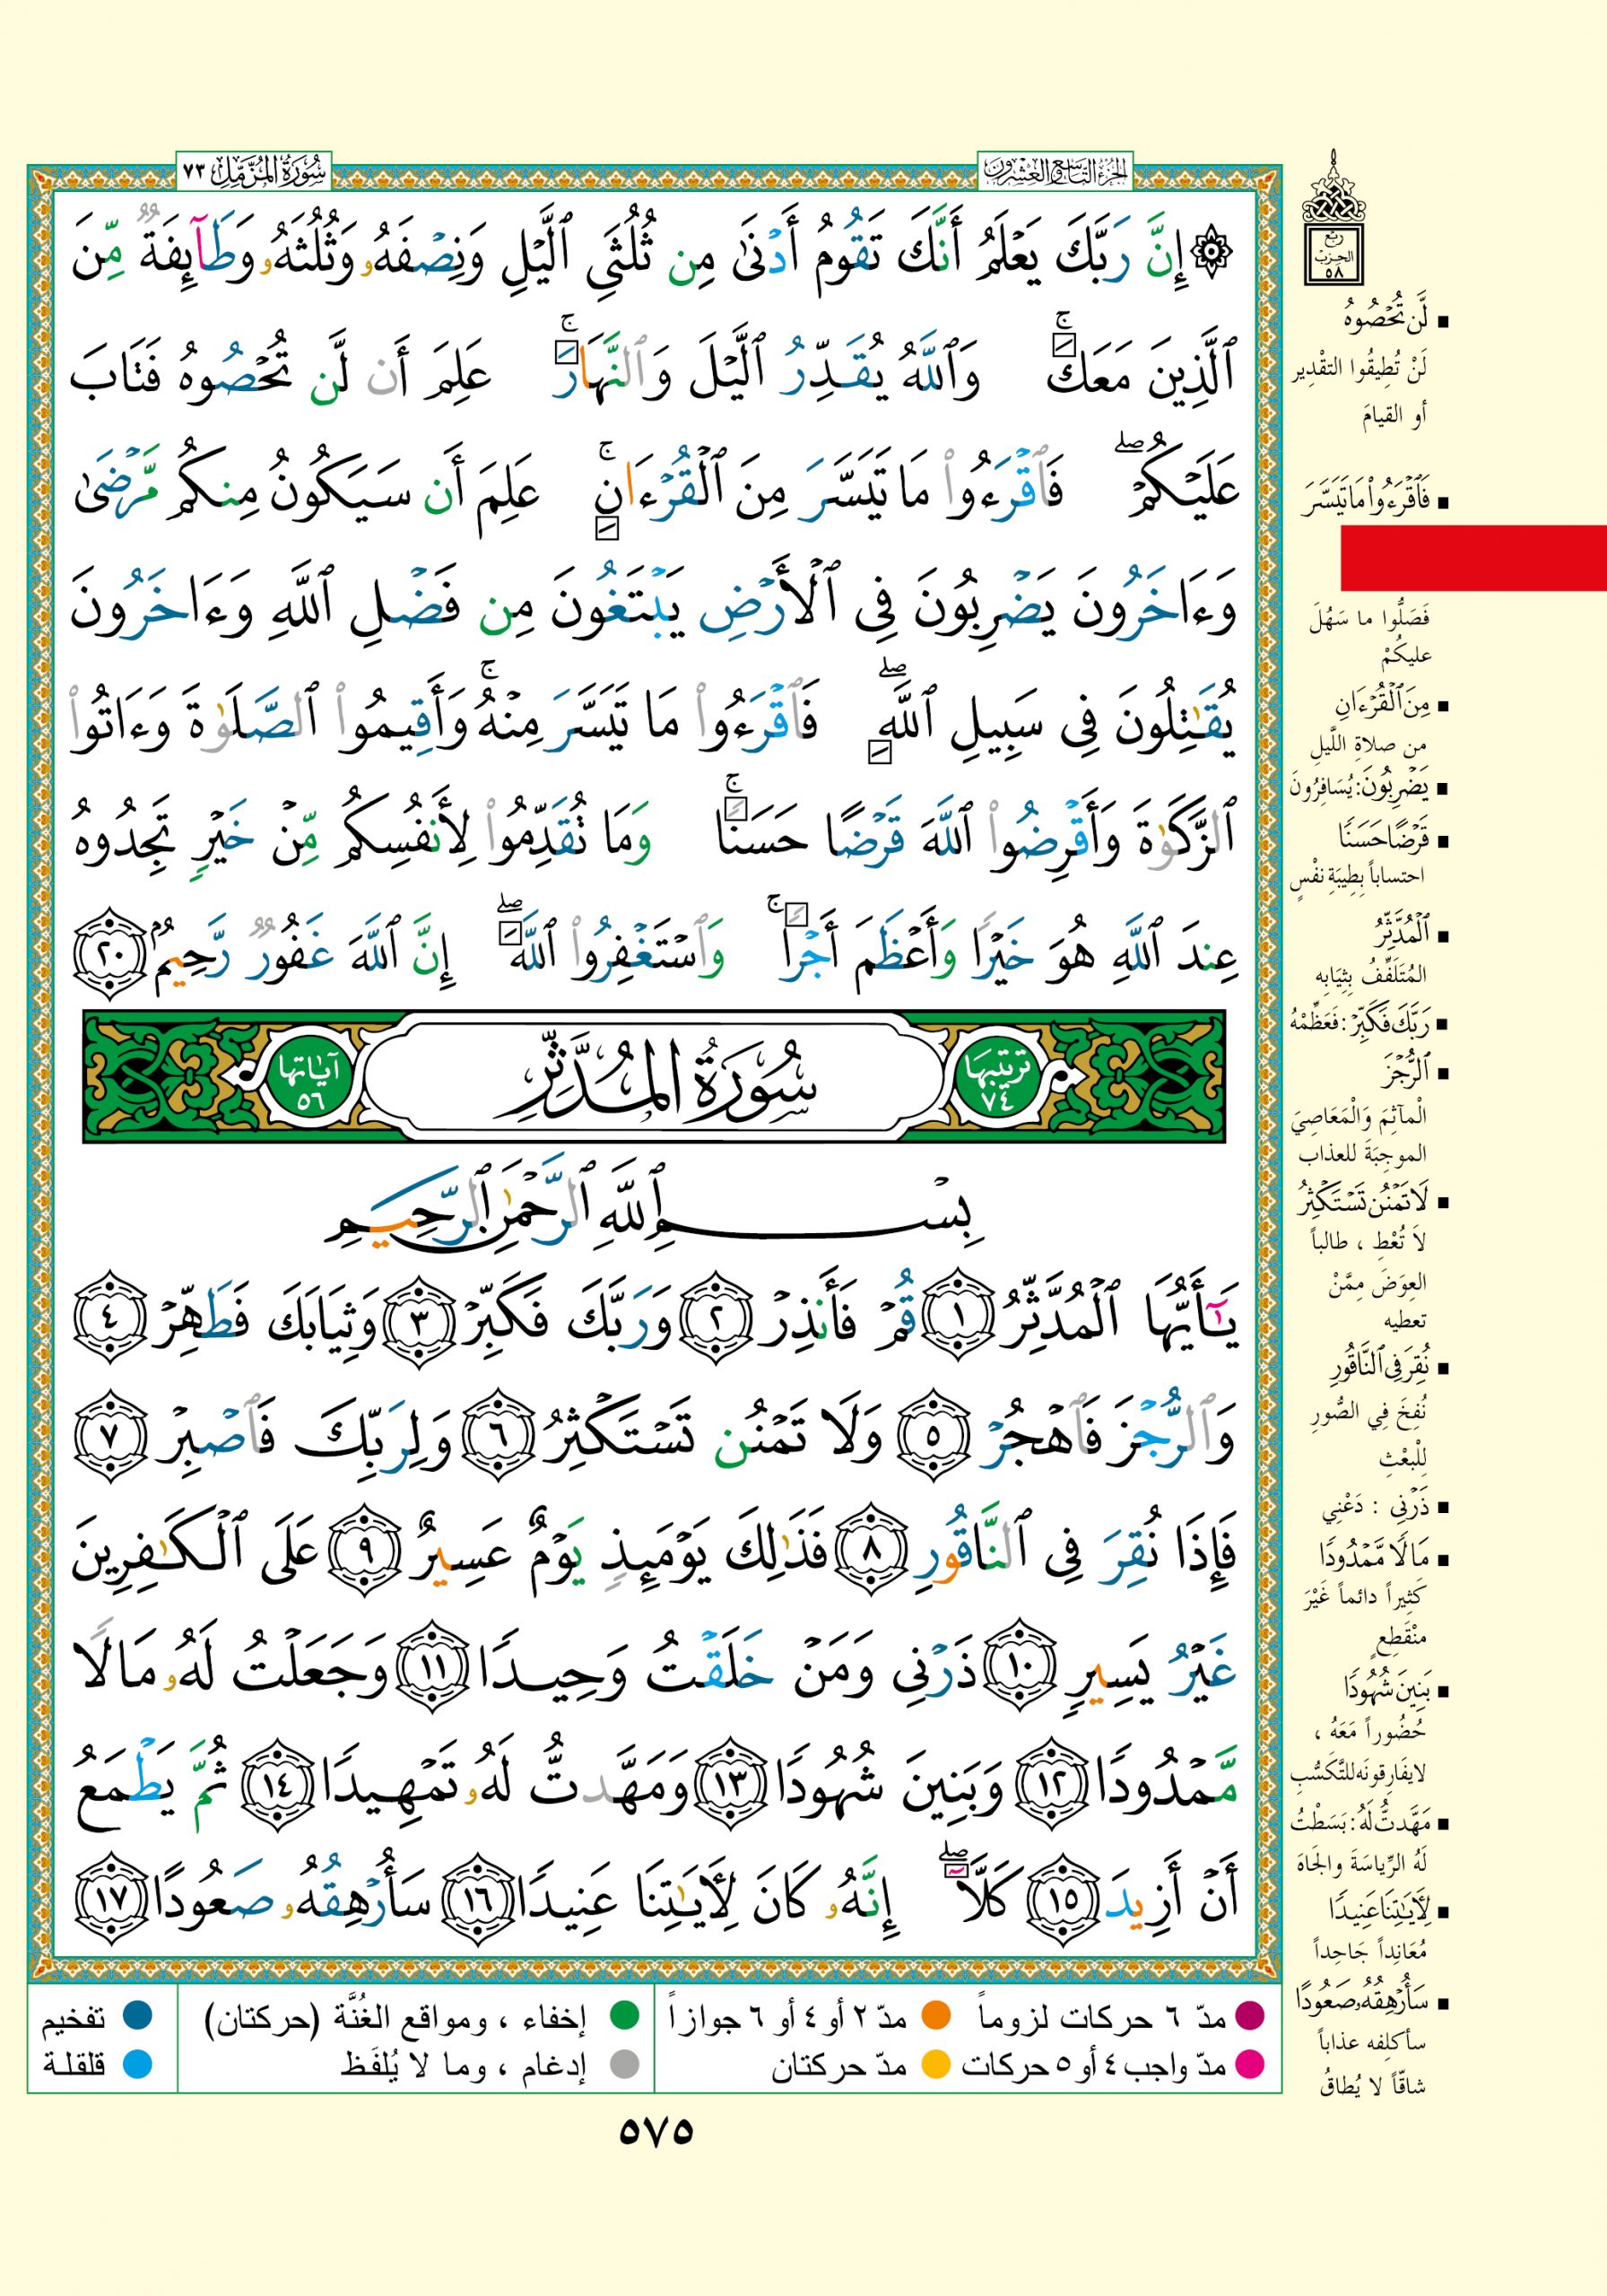 الجزء التاسع والعشرون
سورة المزمل ٧٣
۞ إِنَّ رَبَّكَ يَعْلَمُ أَنَّكَ تَقُومُ أَدْنَىٰ مِن ثُلُثَيِ ٱلَّيْلِ وَنِصْفَهُۥ وَثُلُثَهُۥ وَطَآئِفَةٌ مِّنَ
ٱلَّذِينَ مَعَكَ ۚ وَٱللَّهُ يُقَدِّرُ ٱلَّيْلَ وَٱلنَّهَارَ ۚ عَلِمَ أَن لَّن تُحْصُوهُ فَتَابَ
عَلَيْكُمْ ۖ فَٱقْرَءُوا۟ مَا تَيَسَّرَ مِنَ ٱلْقُرْءَانِ ۚ عَلِمَ أَن سَيَكُونُ مِنكُم مَّرْضَىٰ
وَءَاخَرُونَ يَضْرِبُونَ فِى ٱلْأَرْضِ يَبْتَغُونَ مِن فَضْلِ ٱللَّهِ وَءَاخَرُونَ
يُقَـٰتِلُونَ فِى سَبِيلِ ٱللَّهِ ۖ فَٱقْرَءُوا۟ مَا تَيَسَّرَ مِنْهُ ۚ وَأَقِيمُوا۟ ٱلصَّلَوٰةَ وَءَاتُوا۟
ٱلزَّكَوٰةَ وَأَقْرِضُوا۟ ٱللَّهَ قَرْضًا حَسَنًا ۚ وَمَا تُقَدِّمُوا۟ لِأَنفُسِكُم مِّنْ خَيْرٍ تَجِدُوهُ
عِندَ ٱللَّهِ هُوَ خَيْرًا وَأَعْظَمَ أَجْرًا ۚ وَٱسْتَغْفِرُوا۟ ٱللَّهَ ۖ إِنَّ ٱللَّهَ غَفُورٌ رَّحِيمٌ ٢٠
ترتيبها ٧٤ سُورَةُ المُدَّثِّرِ آياتها ٥٦
بِسْمِ ٱللَّهِ ٱلرَّحْمَـٰنِ ٱلرَّحِيمِ
يَـٰٓأَيُّهَا ٱلْمُدَّثِّرُ ١ قُمْ فَأَنذِرْ ٢ وَرَبَّكَ فَكَبِّرْ ٣ وَثِيَابَكَ فَطَهِّرْ ٤
وَٱلرُّجْزَ فَٱهْجُرْ ٥ وَلَا تَمْنُن تَسْتَكْثِرُ ٦ وَلِرَبِّكَ فَٱصْبِرْ ٧
فَإِذَا نُقِرَ فِى ٱلنَّاقُورِ ٨ فَذَٰلِكَ يَوْمَئِذٍ يَوْمٌ عَسِيرٌ ٩ عَلَى ٱلْكَـٰفِرِينَ
غَيْرُ يَسِيرٍ ١٠ ذَرْنِى وَمَنْ خَلَقْتُ وَحِيدًا ١١ وَجَعَلْتُ لَهُۥ مَالًا
مَّمْدُودًا ١٢ وَبَنِينَ شُهُودًا ١٣ وَمَهَّدتُّ لَهُۥ تَمْهِيدًا ١٤ ثُمَّ يَطْمَعُ
أَنْ أَزِيدَ ١٥ كَلَّآ ۖ إِنَّهُۥ كَانَ لِـَٔايَـٰتِنَا عَنِيدًا ١٦ سَأُرْهِقُهُۥ صَعُودًا ١٧
ربع
الحزب
٥٨
لَّن تُحْصُوهُ
لَنْ تُطِيقُوا التقْدِير
أو القيامَ
فَٱقْرَءُوا۟ مَا تَيَسَّرَ
فَصَلُّوا ما سَهُلَ
عليكُمْ
مِنَ ٱلْقُرْءَانِ
من صلاةِ اللَّيلِ
يَضْرِبُونَ: يُسَافِرُونَ
قَرْضًا حَسَنًا
احتساباً بِطِيبَةِ نفْسٍ
ٱلْمُدَّثِّرُ
المُتَلَفِّفُ بِثِيَابِه
رَبَّكَ فَكَبِّرْ: فَعَظِّمْهُ
ٱلرُّجْزَ
الْمآثِمَ وَالْمَعَاصِيَ
الموجِبَةَ للعذاب
لَا تَمْنُن تَسْتَكْثِرُ
لاَ تُعْطِ ، طالباً
العِوَضَ مِمَّنْ
تعطيه
نُقِرَ فِى ٱلنَّاقُورِ
نُفِخَ فِي الصُّورِ
لِلْبعْثِ
ذَرْنِى : دَعْنِي
مَالًا مَّمْدُودًا
كَثِيراً دائماً غَيْرَ
منْقَطِعٍ
بَنِينَ شُهُودًا
حُضُوراً مَعَهُ ،
لا يفَارِقونَه للتَّكَسُّبِ
مَهَّدتُّ لَهُ: بَسَطْتُ
لَهُ الرِّياسَةَ والجَاهَ
لِـَٔايَـٰتِنَا عَنِيدًا
مُعَانِداً جَاحِداً
سَأُرْهِقُهُۥ صَعُودًا
سأكلِفه عذاباً
شاقّاً لا يُطاقُ
مدّ ٦ حركات لزوماً مدّ ٢ أو ٤ أو ٦ جوازاً إخفاء ، ومواقع الغُنَّة (حركتان) تفخيم
مدّ واجب ٤ أو ٥ حركات مدّ حركتان إدغام ، وما لا يُلفَظ قلقلة
٥٧٥